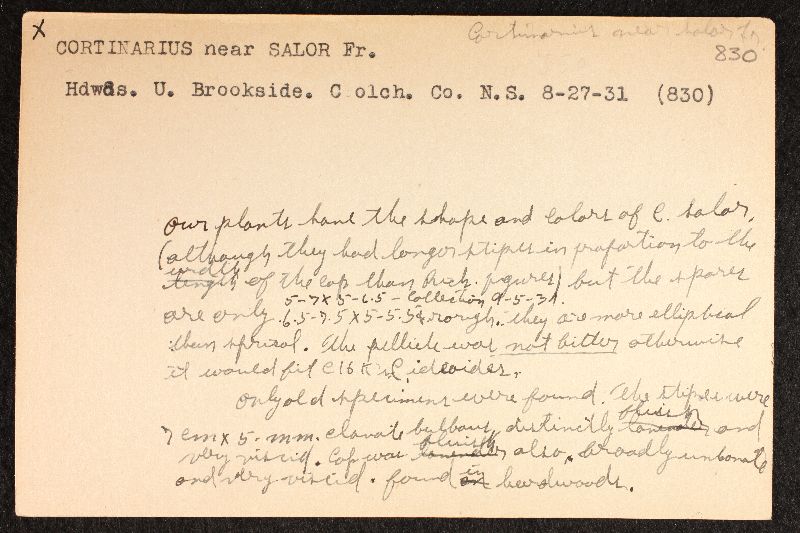 x
Cortinarius near salor Fr.
830
CORTINARIUS near SALOR Fr.
Hdwds. U. Brookside. Colch. Co. N.S. 8-27-31 (830)
Our plants have the shape and colors of C. salor.
(although they had longer stipes in proportion to the
width
length of the cap than Rick. figures) but the spores
5-7 x 5-6.5 - Collection 9-5-31.
are only 6.5-7.5 x 5-5.5 rough. they are more elliptical
than spherical. The pellicle was not bitter otherwise
it would fit C. iodeoides.
Only old specimens were found. The stipes were
bluish
7 cm x 5. mm. clavate bulbous, distinctly lavender and
bluish
very viscid. Cap was lavender also, broadly umbonate
in
and very viscid. found on hardwoods.